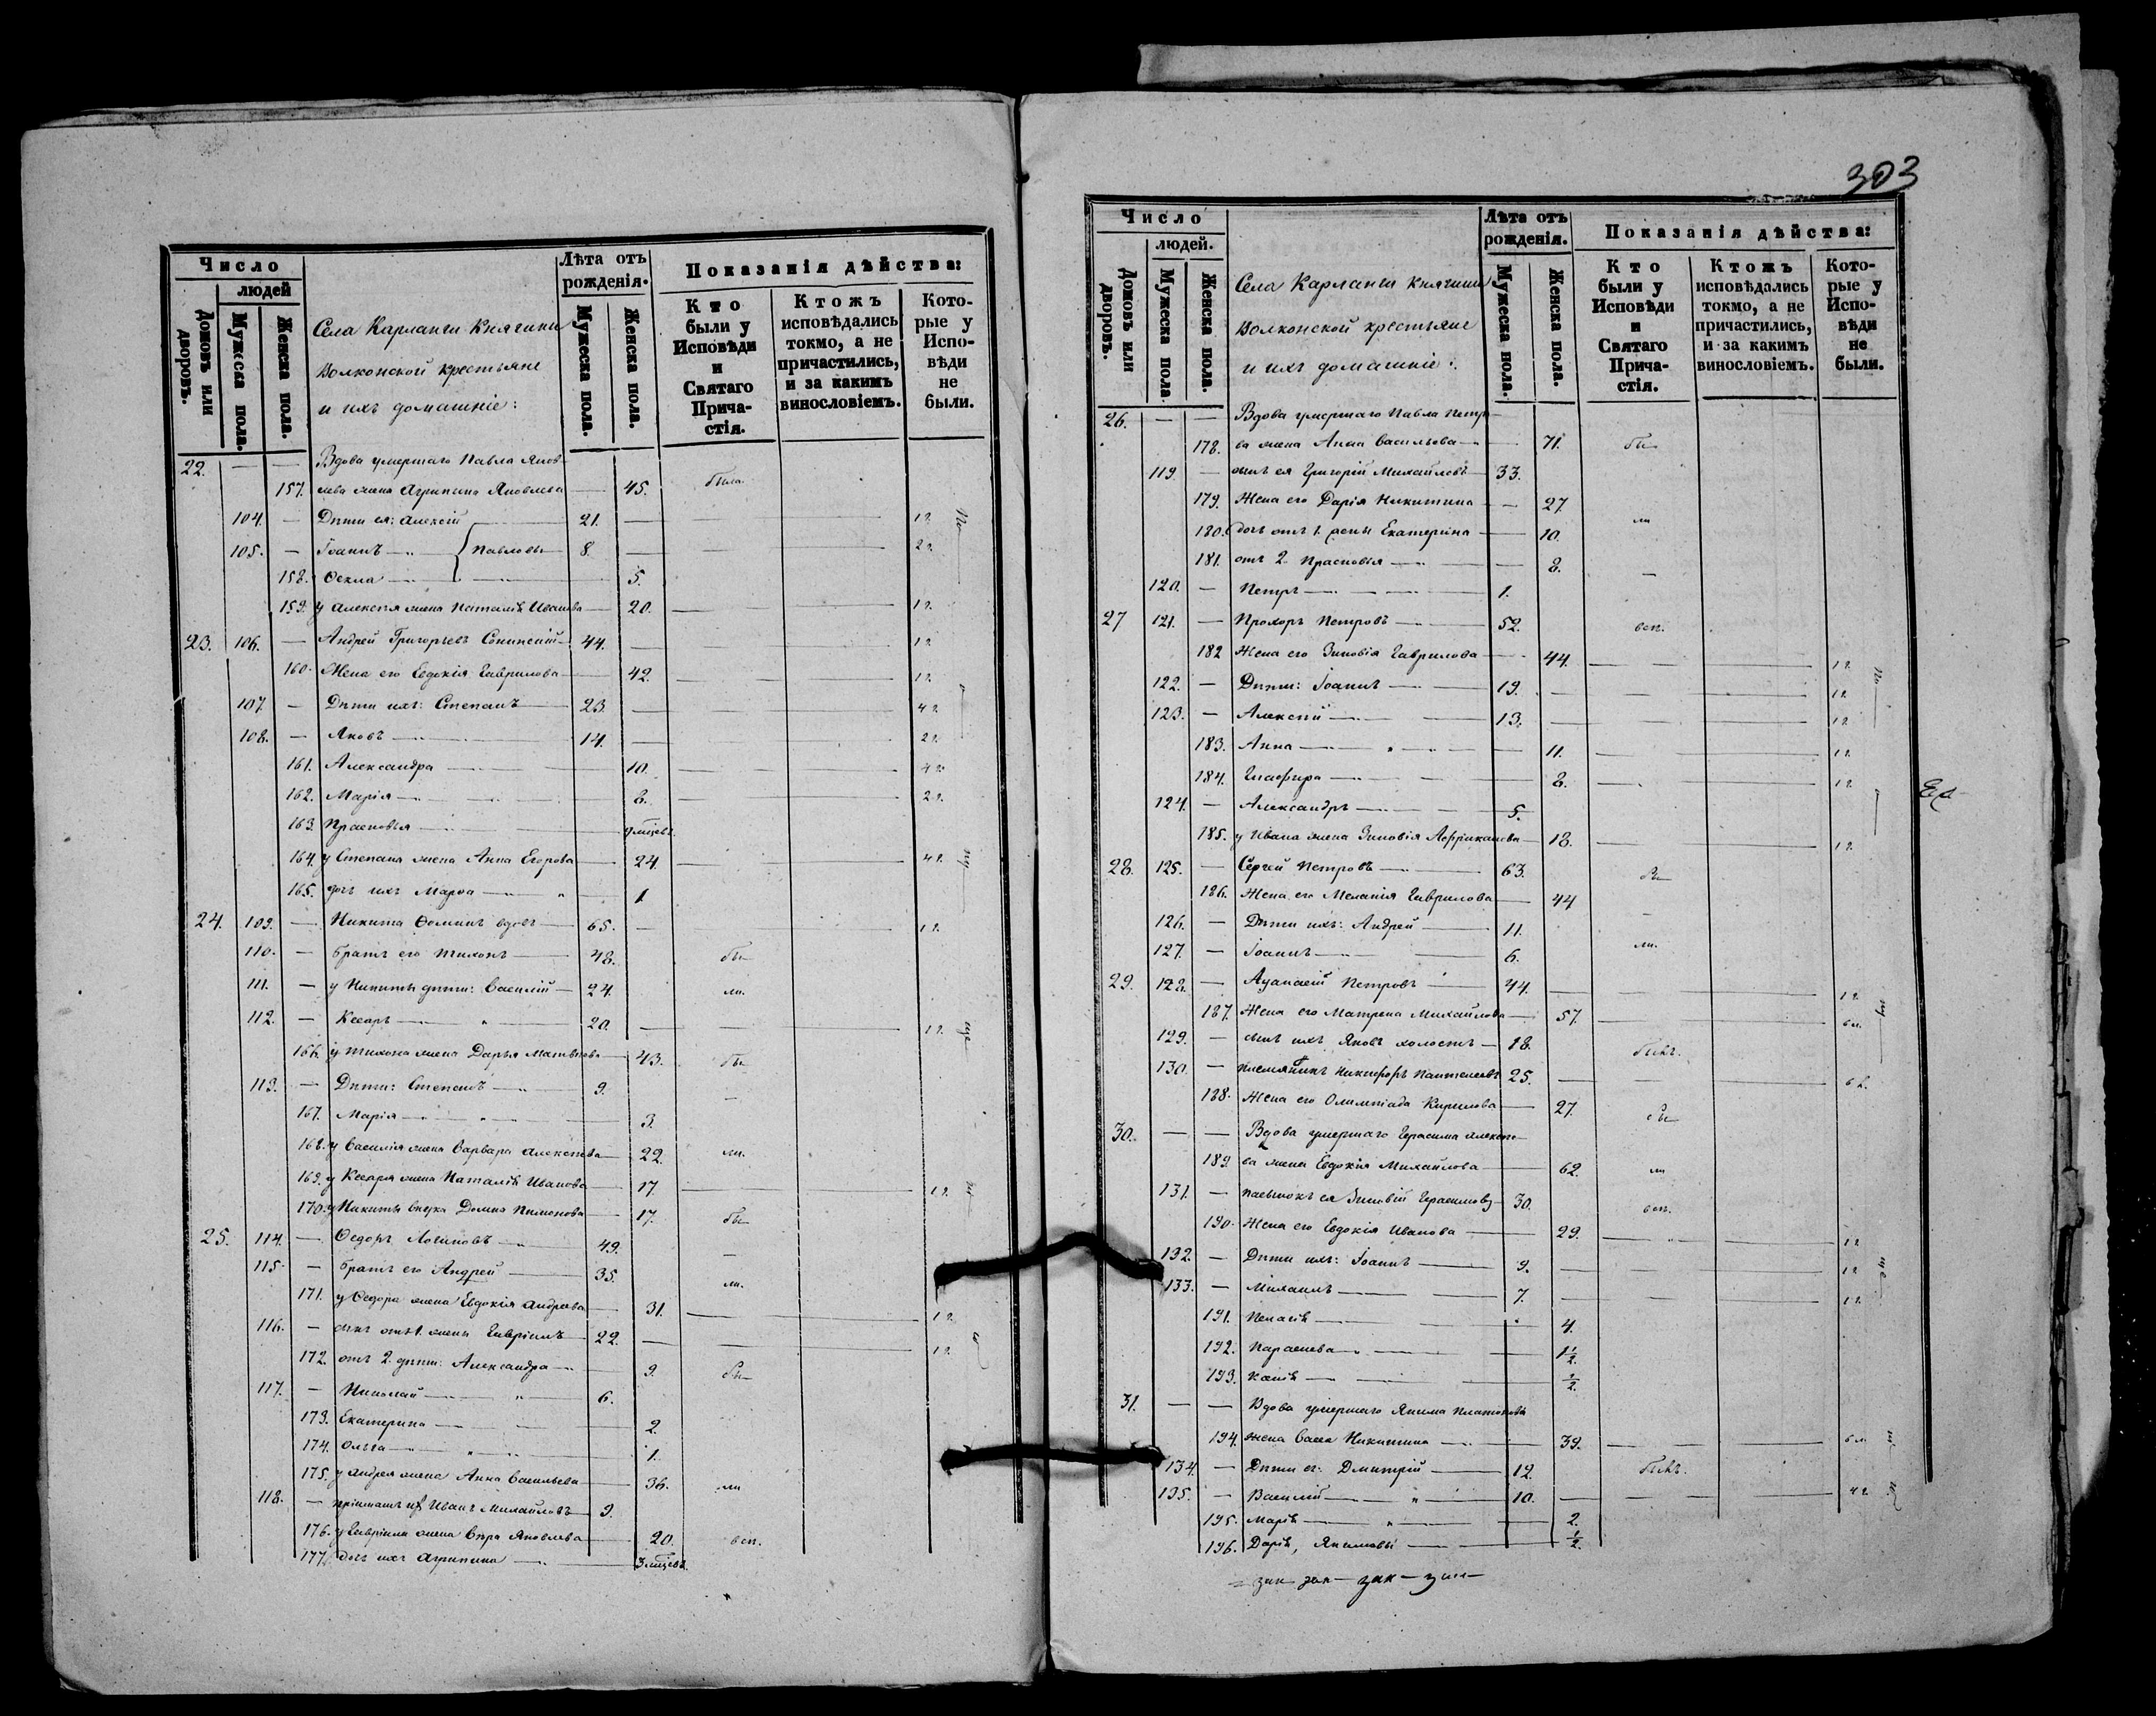 Число
людей
Домовъ или дворовъ.
Мужеска пола.
Женска пола.
Села Карланги Княгини
Волконской крестьяне
и ихъ домашніе:
Лѣта отъ рожденія.
Мужеска пола.
Женска пола.
Показанія дѣйства:
Кто были у Исповѣди и Святаго Прича-стія.
Ктожъ исповѣдались токмо, а не причастились, и за какимъ винословіемъ.
Кото-рые у Испо-вѣди не были.
22. — — Вдова умершаго Павла Яков-
157. лева жена Агрипина Яковлева — 45. была
104. — Дѣти ея: Алексій — 21. — 1 г.
105. — Іоаннъ — Павловы 8. — 2 г.
158. Ѳекла — 5.
159. у Алексѣя жена Наталія Иванова — 20. — 1 г.
23. 106. — Андрей Григорьевъ — 44. — 1 г.
160. Жена его Евдокія Гаврилова — 42. — 1 г.
107. — Дѣти ихъ: Степанъ — 23. — 4 г.
108. — Яковъ — 14. — 2 г.
161. Александра — 10. — 4 г.
162. Марія — 8. — 2 г.
163. Прасковья — 9 мѣсяцъ
164. у Степана жена Анна Егорова — 24. — 4 г.
165. дочь ихъ Марѳа — 1
24. 109. — Никита Ѳоминъ вдовъ — 65. — 1 г.
110. — Братъ его Тихонъ — 48. бы-
111. — у Никиты дѣти: Василій — 24. ли.
112. — Кесарь — 20. — 1 г.
166. у Тихона жена Дарья Матвѣева — 43. бы-
113. — Дѣти: Степанъ — 9. —
167. Марія — 3.
168. у Василія жена Варвара Алексѣева — 22. ли.
169. у Кесаря жена Наталія Иванова — 17. — 1 г.
170. у Никиты внука Домна Пименова — 17. бы-
25. 114. — Ѳедоръ Логиновъ — 49. —
115. — Братъ его Андрей — 35. ли.
171. у Ѳедора жена Евдокія Андреева — 31. — 1 г.
116. — сынъ отъ 1. жены Гавріилъ — 22. — 1 г.
172. отъ 2. дѣти: Александра — 9. бы-
117. — Николай — 6.
173. Екатерина — 2.
174. Ольга — 1.
175. у Андрея жена Анна Васильева — 36. ли
118. — Пріимышъ ихъ Иванъ Михайловъ — 9.
176. у Гавріила жена Вѣра Яковлева — 20. всѣ.
177. дочь ихъ Агрипина — 3 мѣсяц.
303
Число
людей.
Домовъ или дворовъ.
Мужеска пола
Женска пола.
Села Карланги Княгини
Волконской крестьяне
и ихъ домашніе:
Лѣта отъ рожденія.
Мужеска пола.
Женска пола.
Показанія дѣйства:
Кто были у Исповѣди и Святаго Прича-стія.
Ктожъ исповѣдались токмо, а не причастились, и за какимъ винословіемъ.
Кото-рые у Испо-вѣди не были.
26. — — Вдова умершаго Павла Петро-
178. ва жена Анна Васильева — 71. бы-
119. — сынъ ея Григорій Михайловъ — 33.
179. Жена его Дарія Никитина — 27
180. дочь отъ 1. жены Екатерина — 10. ли
181. отъ 2. Прасковія — 8.
120. — Петръ — 1. —
27 121. — Прохоръ Петровъ — 52. всѣ.
182 Жена его Зиновія Гаврилова — 44. — 1 г.
122. — Дѣти: Іоаннъ — 19. — 1 г.
123. — Алексѣй — 13. — 1 г.
183. Анна — 11. — 1 г.
184. Глафира — 8. — 1 г.
124. — Александръ — 5.
185. у Ивана жена Зиновія Африканова — 18. — 1 г.
28. 125. — Сергей Петровъ — 63. бы-
186. Жена его Меланія Гаврилова — 44 —
126. — Дѣти ихъ: Андрей — 11.
127. — Іоаннъ — 6. ли.
29. 128. — Аѳанасій Петровъ — 44. — 1 г.
187. Жена его Матрена Михайлова — 57. — 6 л.
129. — сынъ ихъ Яковъ холостъ — 18. былъ.
130. — племянникъ Никифоръ Пантелеевъ 25. — 6 г.
188. Жена его Олимпіада Кирилова — 27. бы-
30. — — Вдова умершаго Герасима Алексѣе-
189. ва жена Евдокія Михайлова — 62. ли
131. — пасынокъ ея Зиновій Герасимовъ — 30. всѣ.
190. Жена его Евдокія Иванова — 29. — 1 г
132. — Дѣти ихъ: Іоаннъ — 9. — 1 г
133. — Михаилъ — 7. — 1 г.
191. Пелагія — 4.
192. Параскева — 1 1/2.
193. — 1/2.
31. — — Вдова умершаго Якима Платонова
194. жена Васса Никитина — 39. — 6 л.
134. — Дѣти ея: Дмитрій — 12. былъ.
135. — Василій — 10. — 4 г.
195. Марія — 2.
196. Дарія, Якимовы — 1/2.